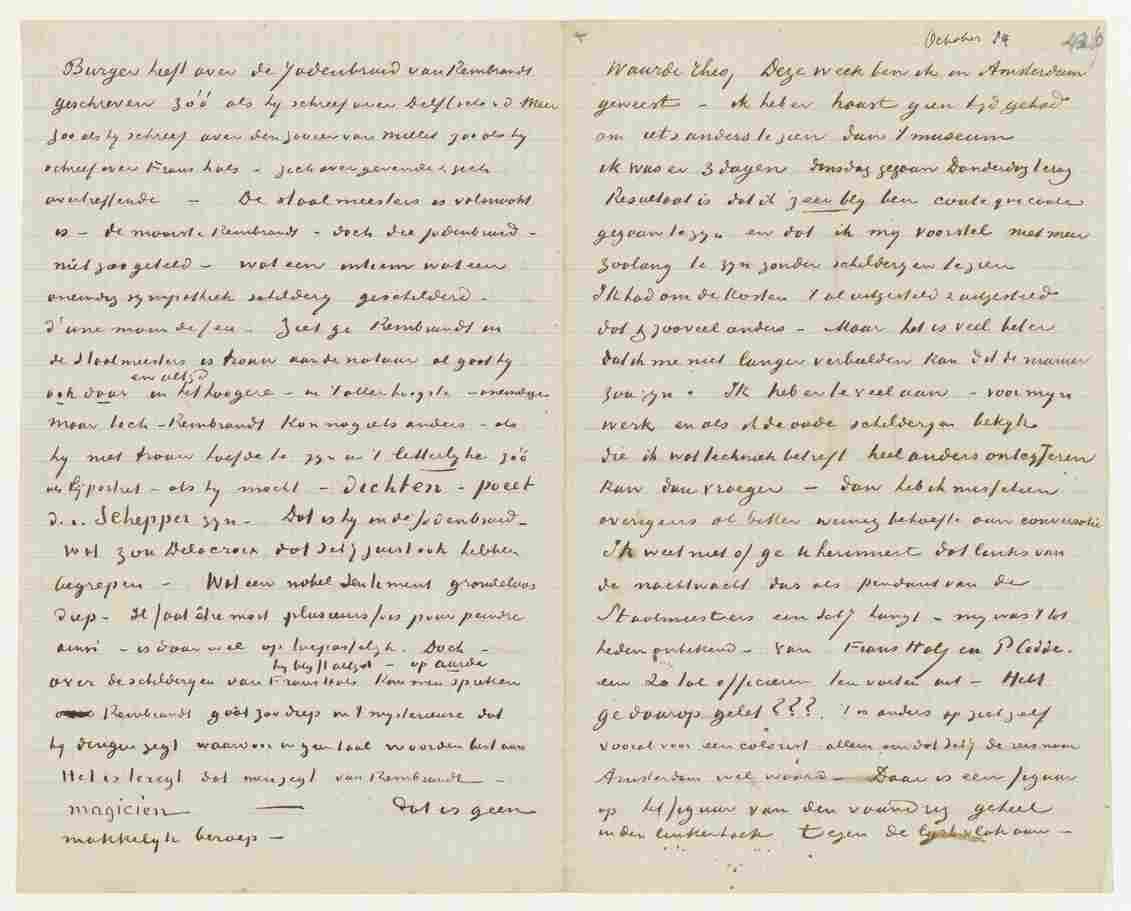 Burger heeft over de Jodenbruid van Rembrandt
geschreven zóó als hy schreef over Delftsche v d Meer
zoo als hy schreef over den zaaier van Millet zoo als hy
schreef over Frans Hals – zich overgevende & zich
overtreffende – De staalmeesters is volmaakt
is – de mooiste Rembrandt – doch die jodenbruid –
niet zoo geteld – wat een intiem wat een
oneindig sympathiek schildery geschilderd
d'une main de feu – Ziet ge Rembrandt in
de Staalmeesters is trouw aan de natuur al gaat hy
ook daar en altyd in het hoogere – in 't aller hoogste – oneindige
Maar toch – Rembrandt kon nog iets anders – als
hy niet trouw hoefde te zyn in 't letterlyke zóó
als by portret – als hy mocht – dichten – poeet
d.i. Schepper zyn – Dat is hy in de jodenbruid –
Wat zou Delacroix dat dery juist ook hebben
begrepen – Wat een nobel sentiment grondeloos
diep – Il faut être mort plusieurs fois pour peindre
ainsi – is daar wel op toepasselyk. Doch –
over de schilderyen van Frans Hals hy blyft altyd – op aarde kan men spreken
Rembrandt gaat zoo diep in 't mysterieuse dat
hy dingen zegt waarvoor in geen taal woorden bestaan
Het is teregt dat men zegt van Rembrandt –
magicien – dat is geen
makkelyk beroep –
October 84
Waarde Theo, Deze week ben ik in Amsterdam
geweest – ik heb er haast geen tyd gehad
om iets anders te zien dan 't museum
ik was er 3 dagen dinsdag gegaan Donderdag terug
Resultaat is dat ik zeer bly ben coute que coute
gegaan te zyn en dat ik my voorstel niet meer
zoolang te zyn zonder schilderyen te zien
Ik had om de kosten 't al uitgesteld & uitgesteld
dat & zooveel anders – Maar het is veel beter
dat ik me niet langer verbeelden kan dat de manier
zoo zyn. Ik heb er te veel aan – voor myn
werk en als ik de oude schilderyen bekyk
die ik wat techniek betreft heel anders ontcyfferen
kan dan vroeger – dan heb ik misschien
overigens al bitter weinig behoefte aan conversatie
Ik weet niet of ge U herinnert dat links van
de nachtwacht dus als pendant van de
Staalmeesters een dery hangt – my was 't tot
heden onbekend – van Frans Hals en P. Codde.
een 20 tal officieren ten voeten uit – Hebt
ge daarop gelet???. 't is anders op zich zelf
vooral voor een colorist alleen om dat dery de reis naar
Amsterdam wel waard – Daar is een figuur
op het figuur van den vaandrig geheel
in den linkerhoek tegen de lyst vlak aan –